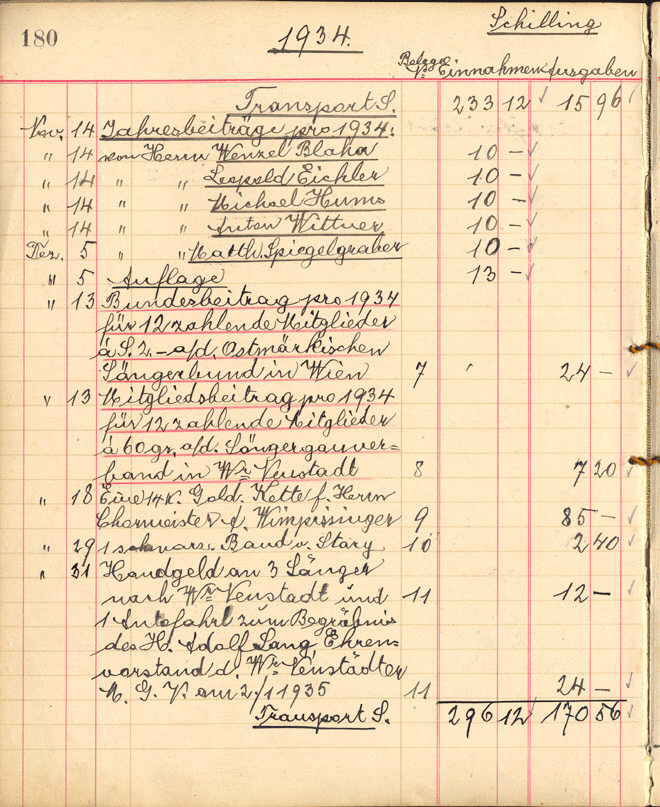 180
1934.
Schilling
Belege № Einnahmen Ausgaben
Transport S. 233 12 15 96
Nov. 14 Jahresbeiträge pro 1934:
" 14 von Herrn Wenzel Blaha 10 –
" 14 " " Leopold Eichler 10 –
" 14 " " Michael Hums 10 –
" 14 " " Anton Wittner 10 –
Dez. 5 " " Matth. Spiegelgraber 10 –
" 5 Auflage 13 –
" 13 Bundesbeitrag pro 1934
für 12 zahlende Mitglieder
à S. 2.– a/d. Ostmärkischen
Sängerbund in Wien 7 24 –
" 13 Mitgliedsbeitrag pro 1934
für 12 zahlende Mitglieder
à 60 gr. a/d. Sängergauver=
band in Wr Neustadt 8 7 20
" 18 Eine 14 K. Gold. Kette f. Herrn
Chormeister A. Wimpissinger 9 85 –
" 29 1 schwarz. Band v. Stary 10 2 40
" 31 Handgeld an 3 Sänger
nach Wr Neustadt und 11 12 –
1 Autofahrt zum Begräbnis
des H. Adolf Lang Ehren=
vorstand d. Wr Neustädter
M. G. V. am 2./1 1935 11 24 –
Transport S. 296 12 170 56